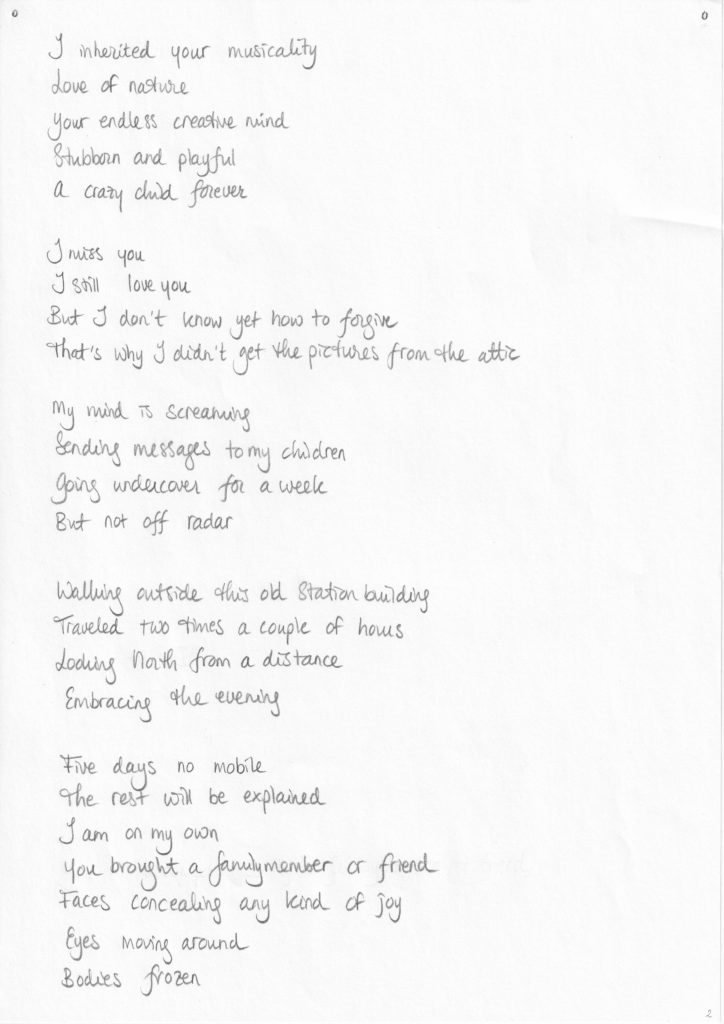 I inherited your musicality
Love of nature
Your endless creative mind
Stubborn and playful
A crazy child forever
I miss you
I still love you
But I don't know yet how to forgive
That's why I didn't get the pictures from the attic
My mind is screaming
Sending messages to my children
Going undercover for a week
But not off radar
Walking outside this old Station building
Traveled two times a couple of hours
Looking North from a distance
Embracing the evening
Five days no mobile
The rest will be explained
I am on my own
You brought a familymember or friend
Faces concealing any kind of joy
Eyes moving around
Bodies frozen
2